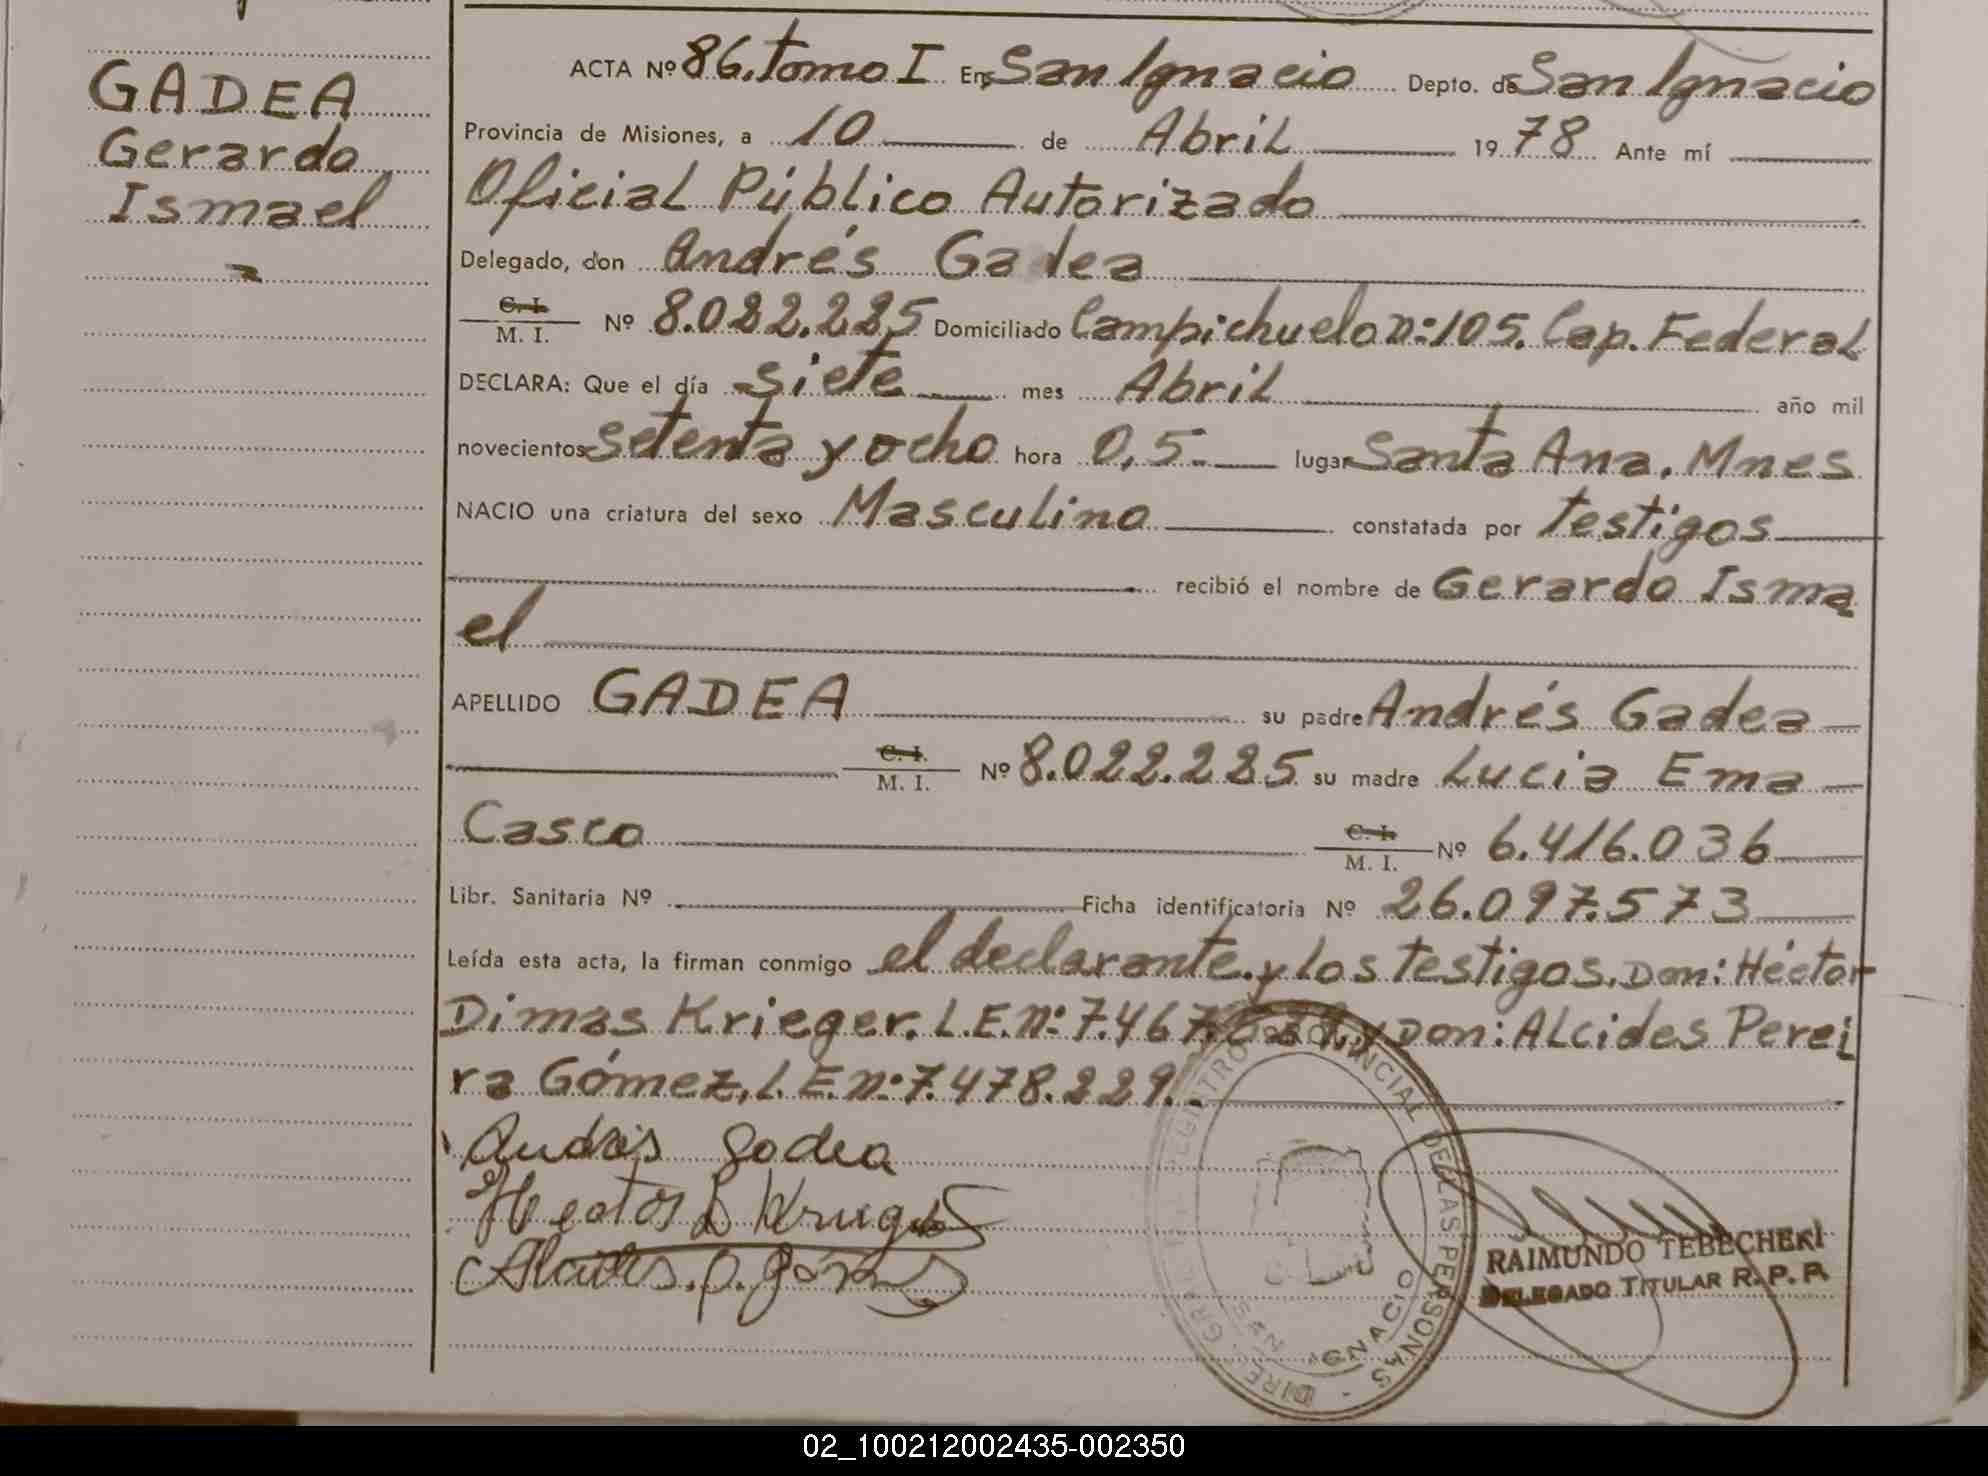 GADEA
Gerardo
Ismael
ACTA Nº 86. Tomo I En San Ignacio Depto. de San Ignacio
Provincia de Misiones, a 10 de Abril 1978 Ante mí
Oficial Público Autorizado
Delegado, don Andrés Gadea
C. I.
M. I. Nº 8.022.225 Domiciliado Campichuelo n:105. Cap. Federal
DECLARA: Que el día siete mes Abril año mil
novecientos setenta y ocho hora 0,5.- lugar Santa Ana. Mnes
NACIO una criatura del sexo Masculino constatada por testigos
recibió el nombre de Gerardo Isma
el
APELLIDO GADEA su padre Andrés Gadea
C. I.
M. I. Nº 8.022.225 su madre Lucia Ema
Casco C. I.
M. I. Nº 6.416.036
Libr. Sanitaria Nº Ficha identificatoria Nº 26.097.573
Leída esta acta, la firman conmigo el declarante. y los testigos. Don: Héctor
Dimas Krieger. L.E.n: 7.467. y Don: Alcides Perei
ra Gómez. L.E.n: 7.478.229.-
Andrés Gadea
Hector D Krieger
Alcides. P. Gómez
REGISTRO PROVINCIAL DE LAS PERSONAS
SAN IGNACIO
RAIMUNDO TEBECHERI
DELEGADO TITULAR R. P. P.
02_100212002435-002350